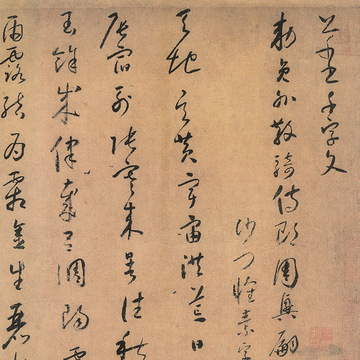 千字文
勅員外散騎侍郎周興嗣
沙門懷素
天地玄黃宇宙洪荒日
辰宿列張寒來暑往秋
閏餘成律歲呂調陽雲
雨露結為霜金生麗